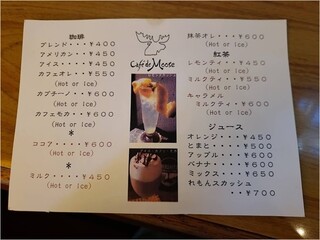 珈琲
ブレンド・・・¥400
アメリカン・・・¥450
アイス・・・・¥450
カフェオレ・・¥550
(Hot or Ice)
カプチーノ・・¥600
(Hot or Ice)
カフェモカ・・¥600
(Hot or Ice)
*
ココア・・・・¥600
(Hot or Ice)
*
ミルク・・・・¥450
(Hot or Ice)
Café de Moose
抹茶オレ・・・¥600
(Hot or Ice)
紅茶
レモンティ・・¥450
ミルクティ・・¥550
(Hot or Ice)
キャラメル
ミルクティ・¥600
(Hot or Ice)
ジュース
オレンジ・・・¥450
とまと・・・・¥500
アップル・・・¥600
バナナ・・・・¥600
ミックス・・・¥650
れもんスカッシュ
・・¥700